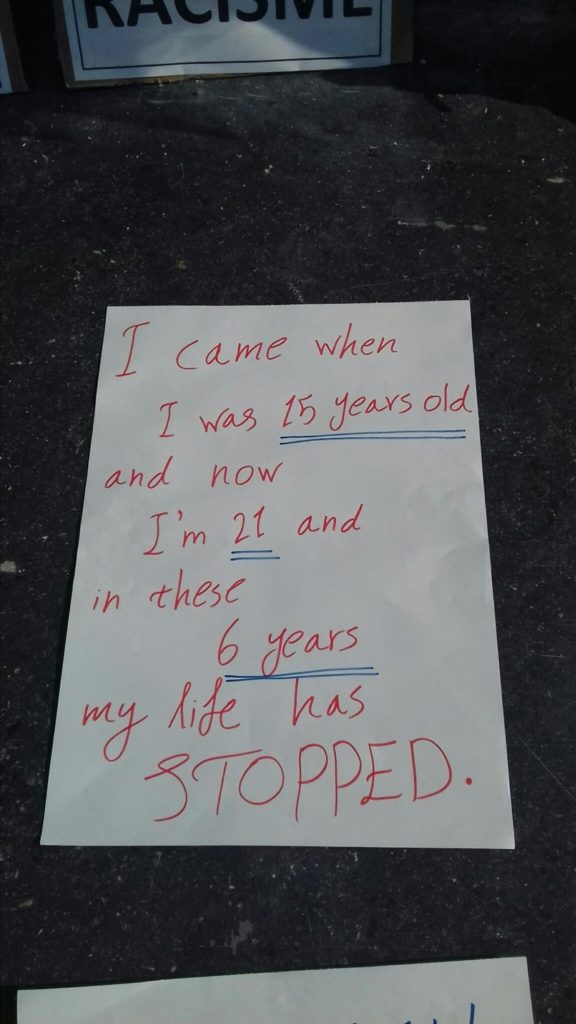 RACISME
I came when
I was 15 years old
and now
I'm 21 and
in these
6 years
my life has
STOPPED.